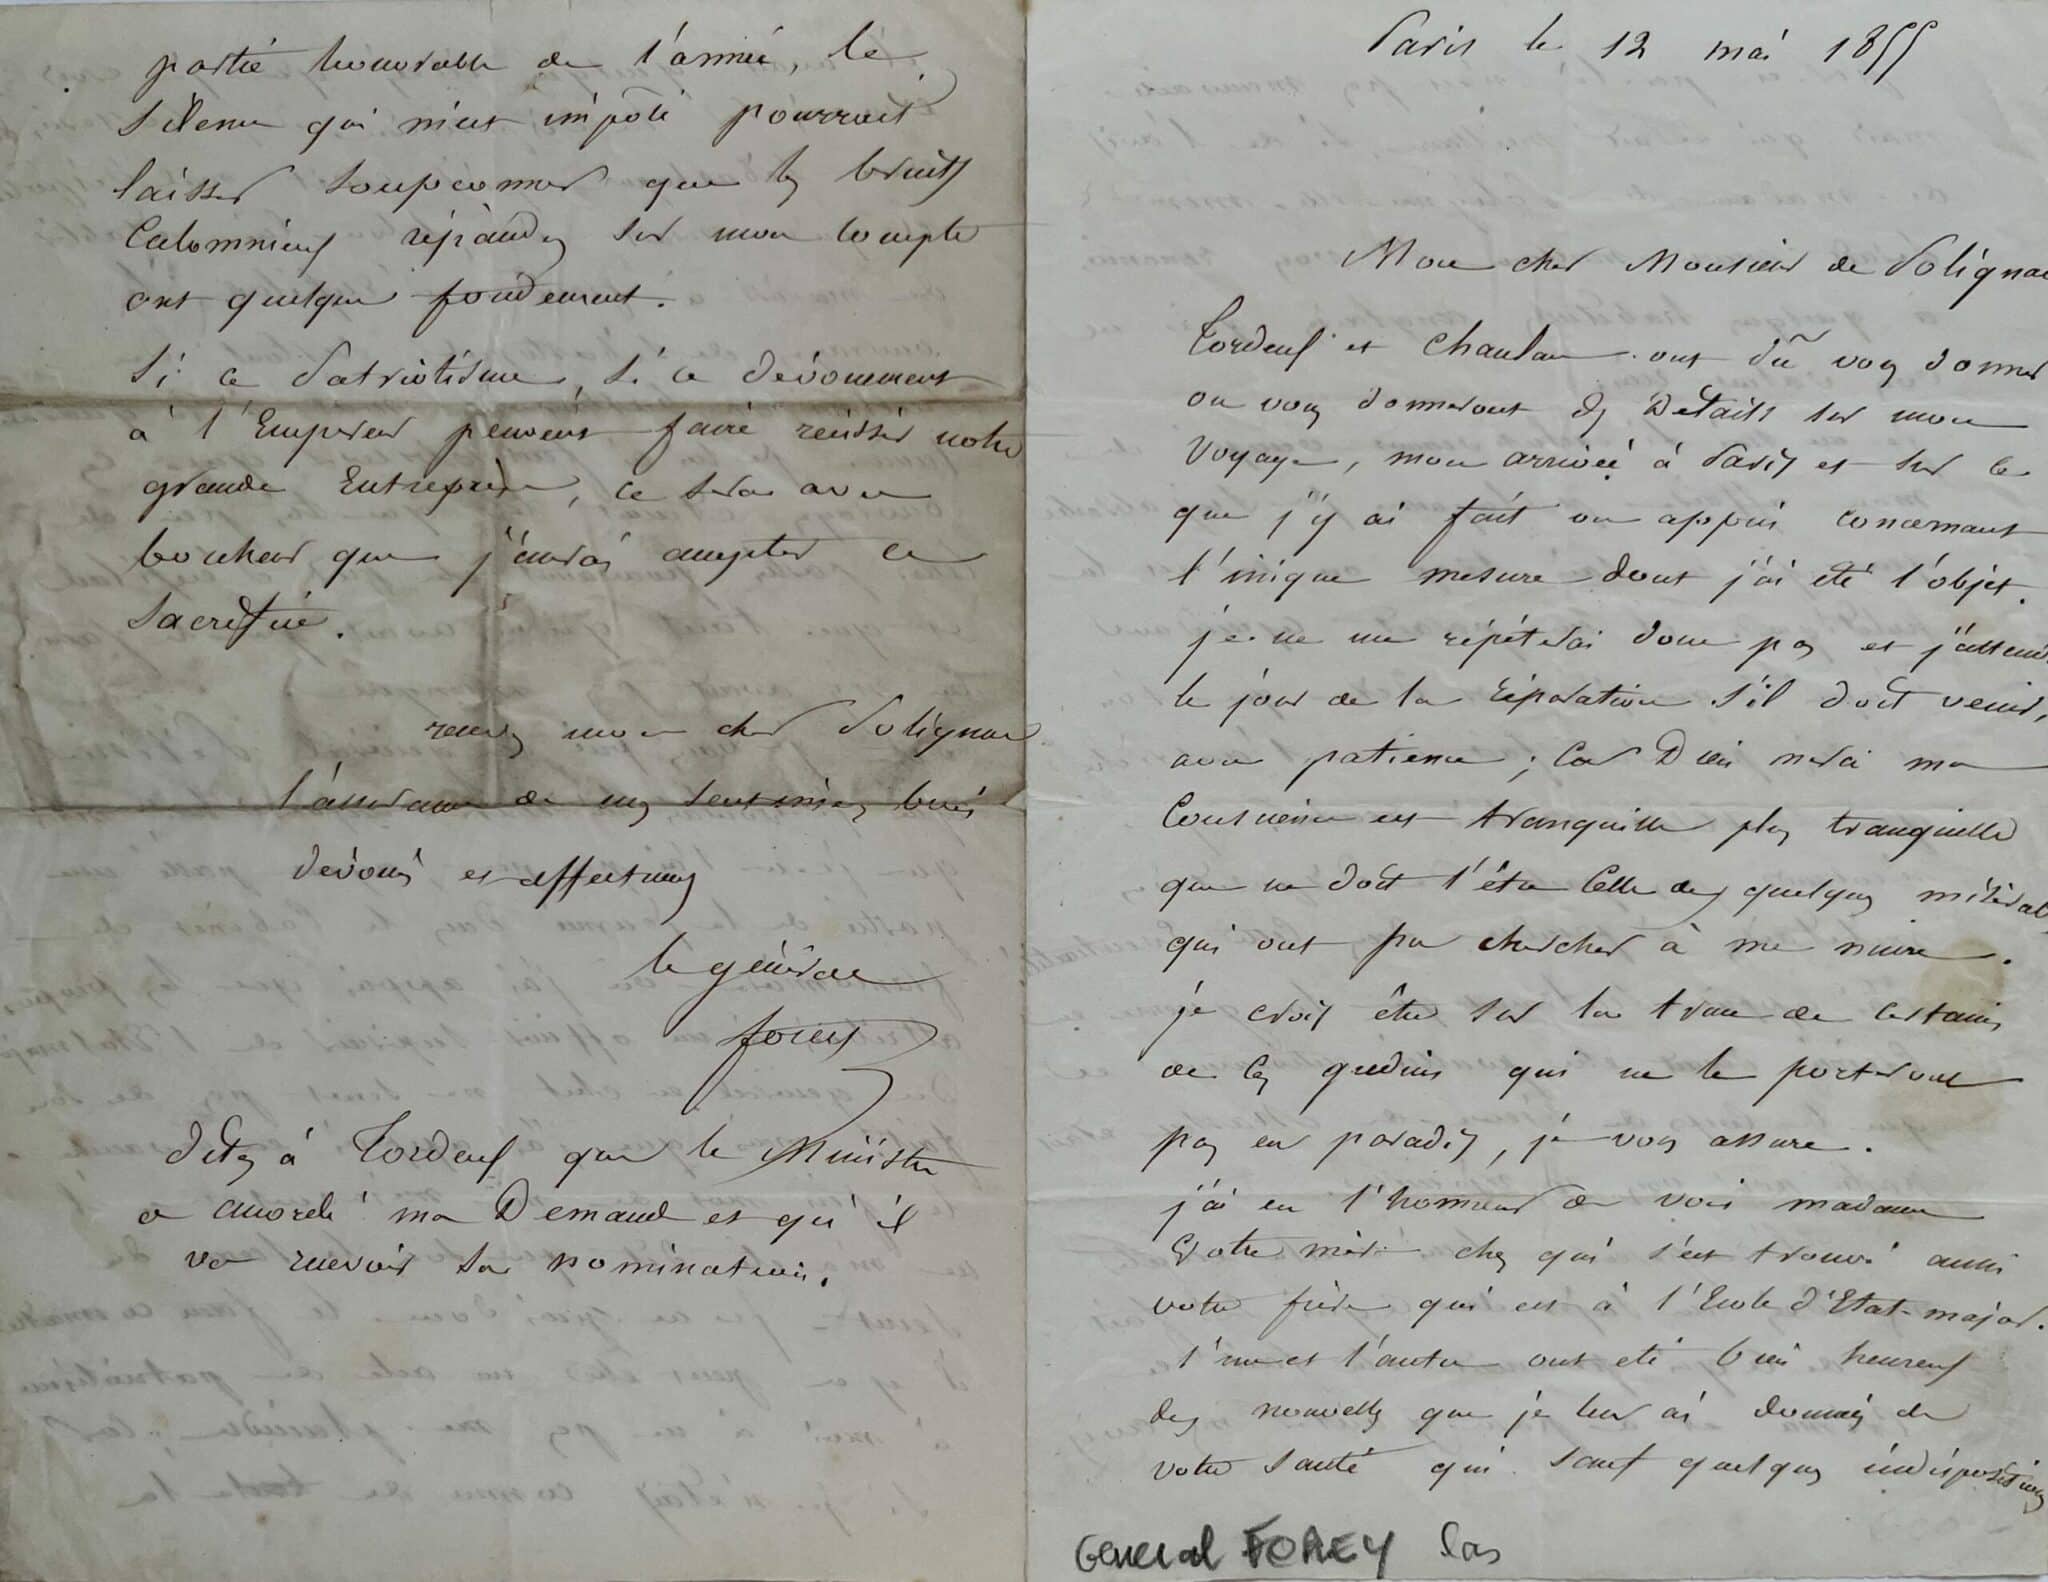 Paris le 12 mai 1855
Mon cher Monsieur de Polignac
Tordeux et Chaulan ont dû vous donner
ou vous donneront des Détails sur mon
voyage, mon arrivée à Paris et sur ce
que j'y ai fait ou appris concernant
l'inique mesure dont j'ai été l'objet.
je ne me répéterai donc pas et j'attends
le jour de la réparation s'il doit venir,
avec patience ; Car Dieu merci ma
Conscience est tranquille plus tranquille
que ne doit l'être Celle de quelques misérables
qui ont pu chercher à me nuire.
je crois être sur la trace de certains
de ces gredins qui ne le porteront
pas en paradis, je vous assure.
j'ai eu l'honneur de voir madame
Votre mère chez qui s'est trouvé aussi
votre frère qui est à l'Ecole d'Etat-major.
l'une et l'autre ont été bien heureux
des nouvelles que je leur ai données de
votre santé qui sauf quelques indispositions
General FOREY Las
partie honorable de l'armée, le
silence qui m'est imposé pourrait
laisser soupconner que les bruits
Calomnieux répandus sur mon compte
ont quelque fondement.
Si ce Patriotisme, si ce dévouement
à l'Empereur peuvent faire réussir notre
grande Entreprise, ce sera avec
bonheur que j'aurai accepter ce
sacrifice.
recevez mon cher Polignac
l'assurance de mes sentimens bien
dévoués et affectueux
le général
forey
dites à Tordeux que le Ministre
a accordé ma Demande et qu'il
va recevoir sa nomination.